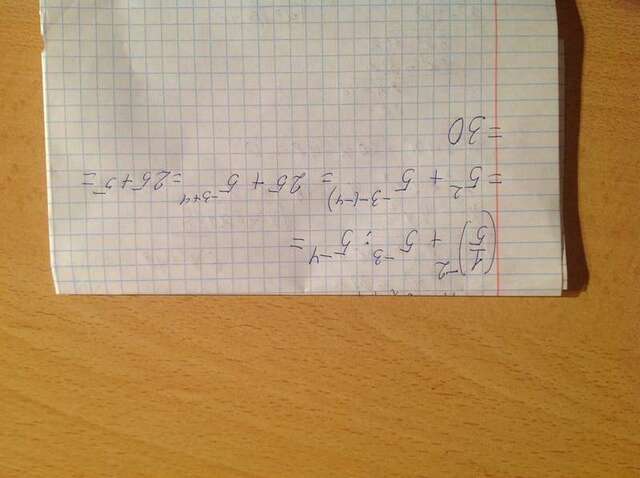 (1/5)^-2 + 5^-3 : 5^-4 =
= 5^2 + 5^-3-(-4) = 25 + 5^-3+4 = 25 + 5 =
= 30